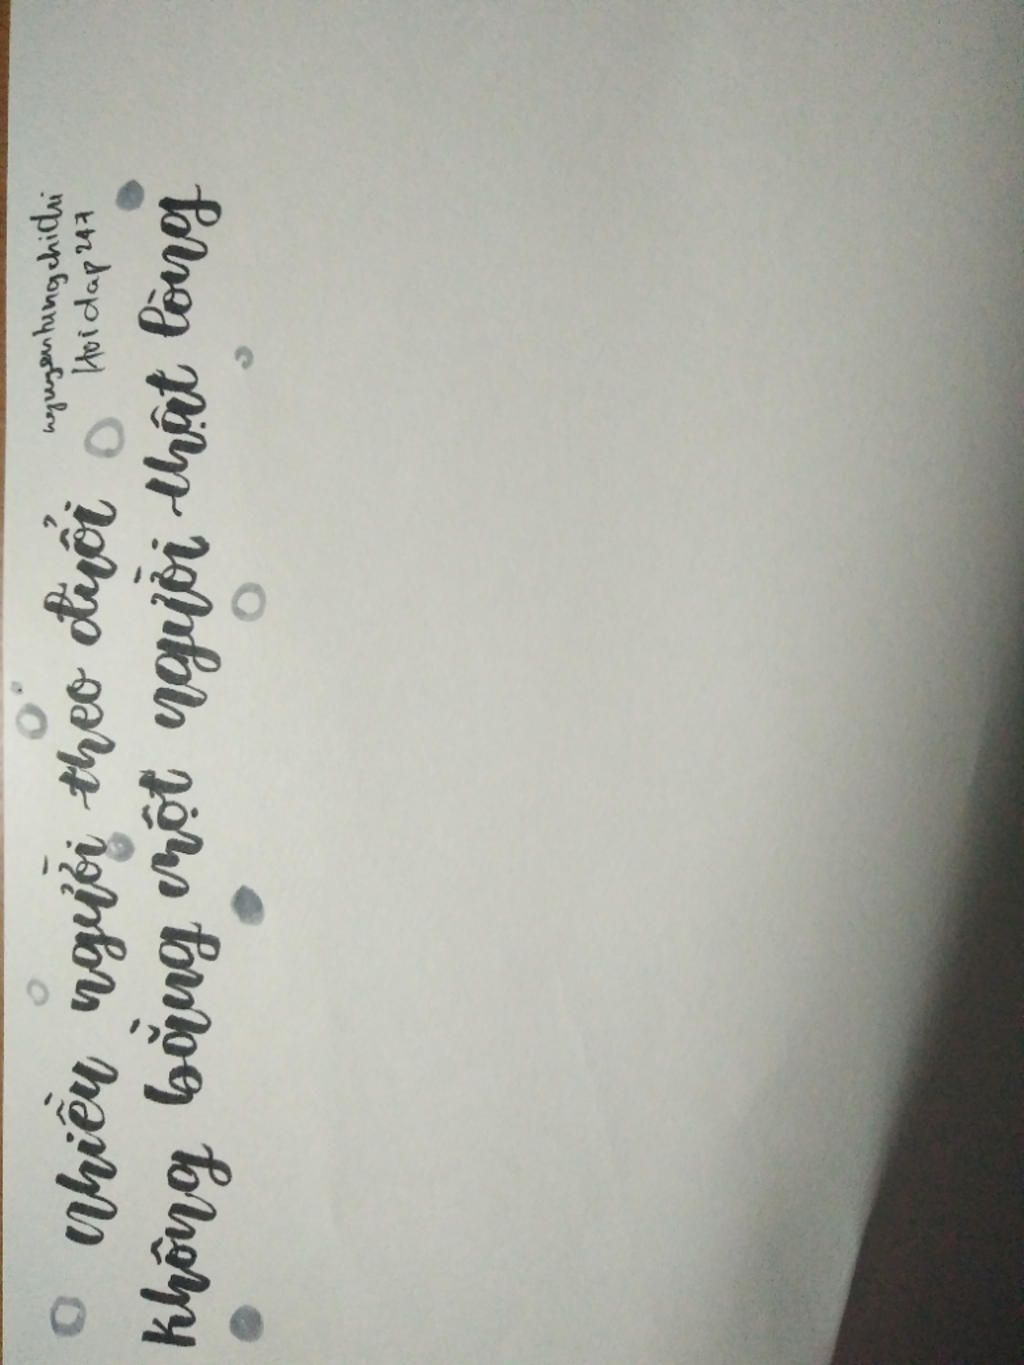 nguyenhungchithi
Hoidap247
nhiều người theo đuổi
không bằng một người thật lòng